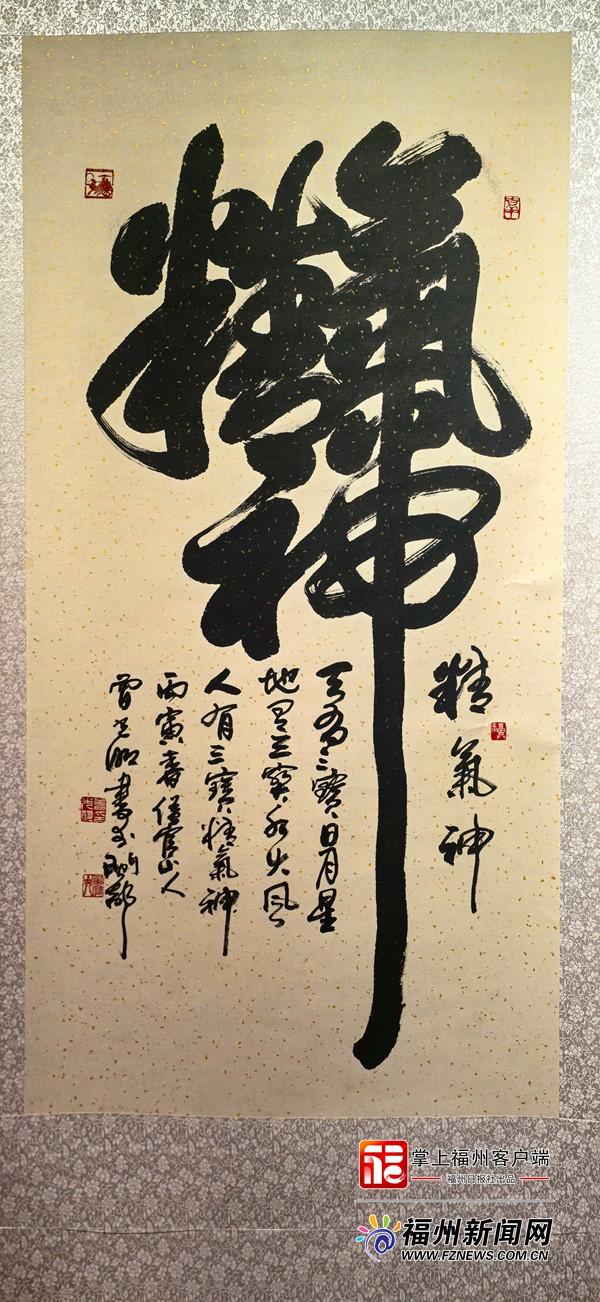 精氣神
精氣神
天有三寶日月星
地有三寶水火風
人有三寶精氣神
丙寅春任官山人
書於
掌上福州客户端
福州日报社出品
福州新闻网
WWW.FZNEWS.COM.CN